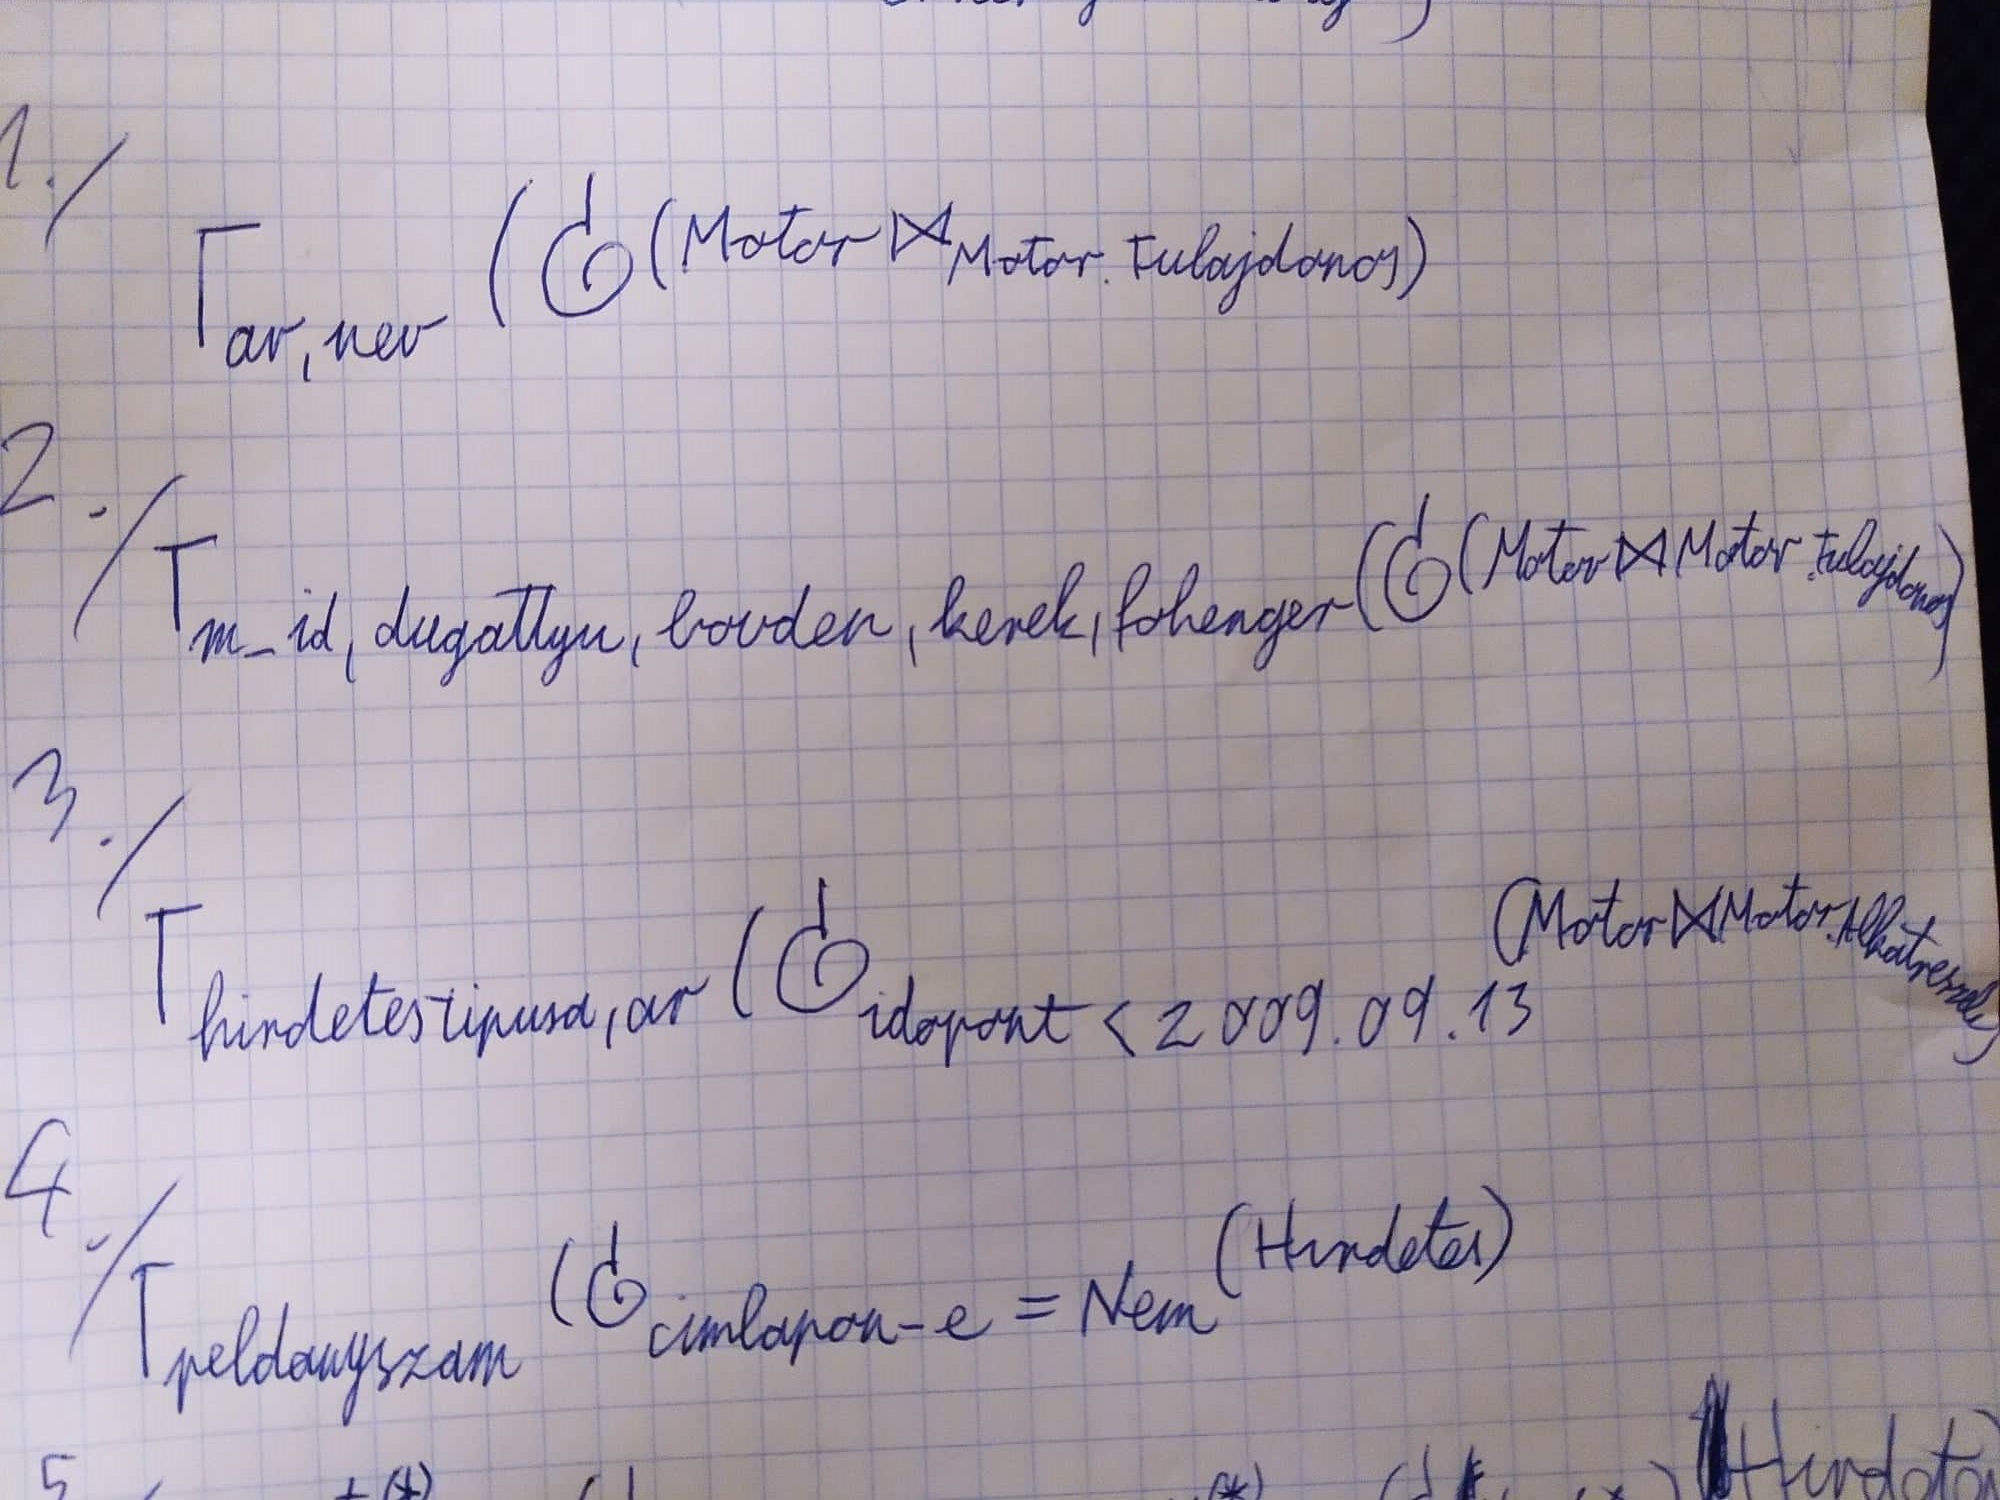 1./
Γ ar, nev (σ (Motor ⋈ Motor.Tulajdonos)
2./
Γ m_id, dugattyu, bovden, kerek, fohenger (σ (Motor ⋈ Motor.Tulajdonos)
3./
Γ hirdetestipusa, ar (σ idopont < 2009.09.13 (Motor ⋈ Motor.Alkatreszek)
4./
Γ peldanyszam (σ cimlapon-e = Nem (Hirdetes)
5